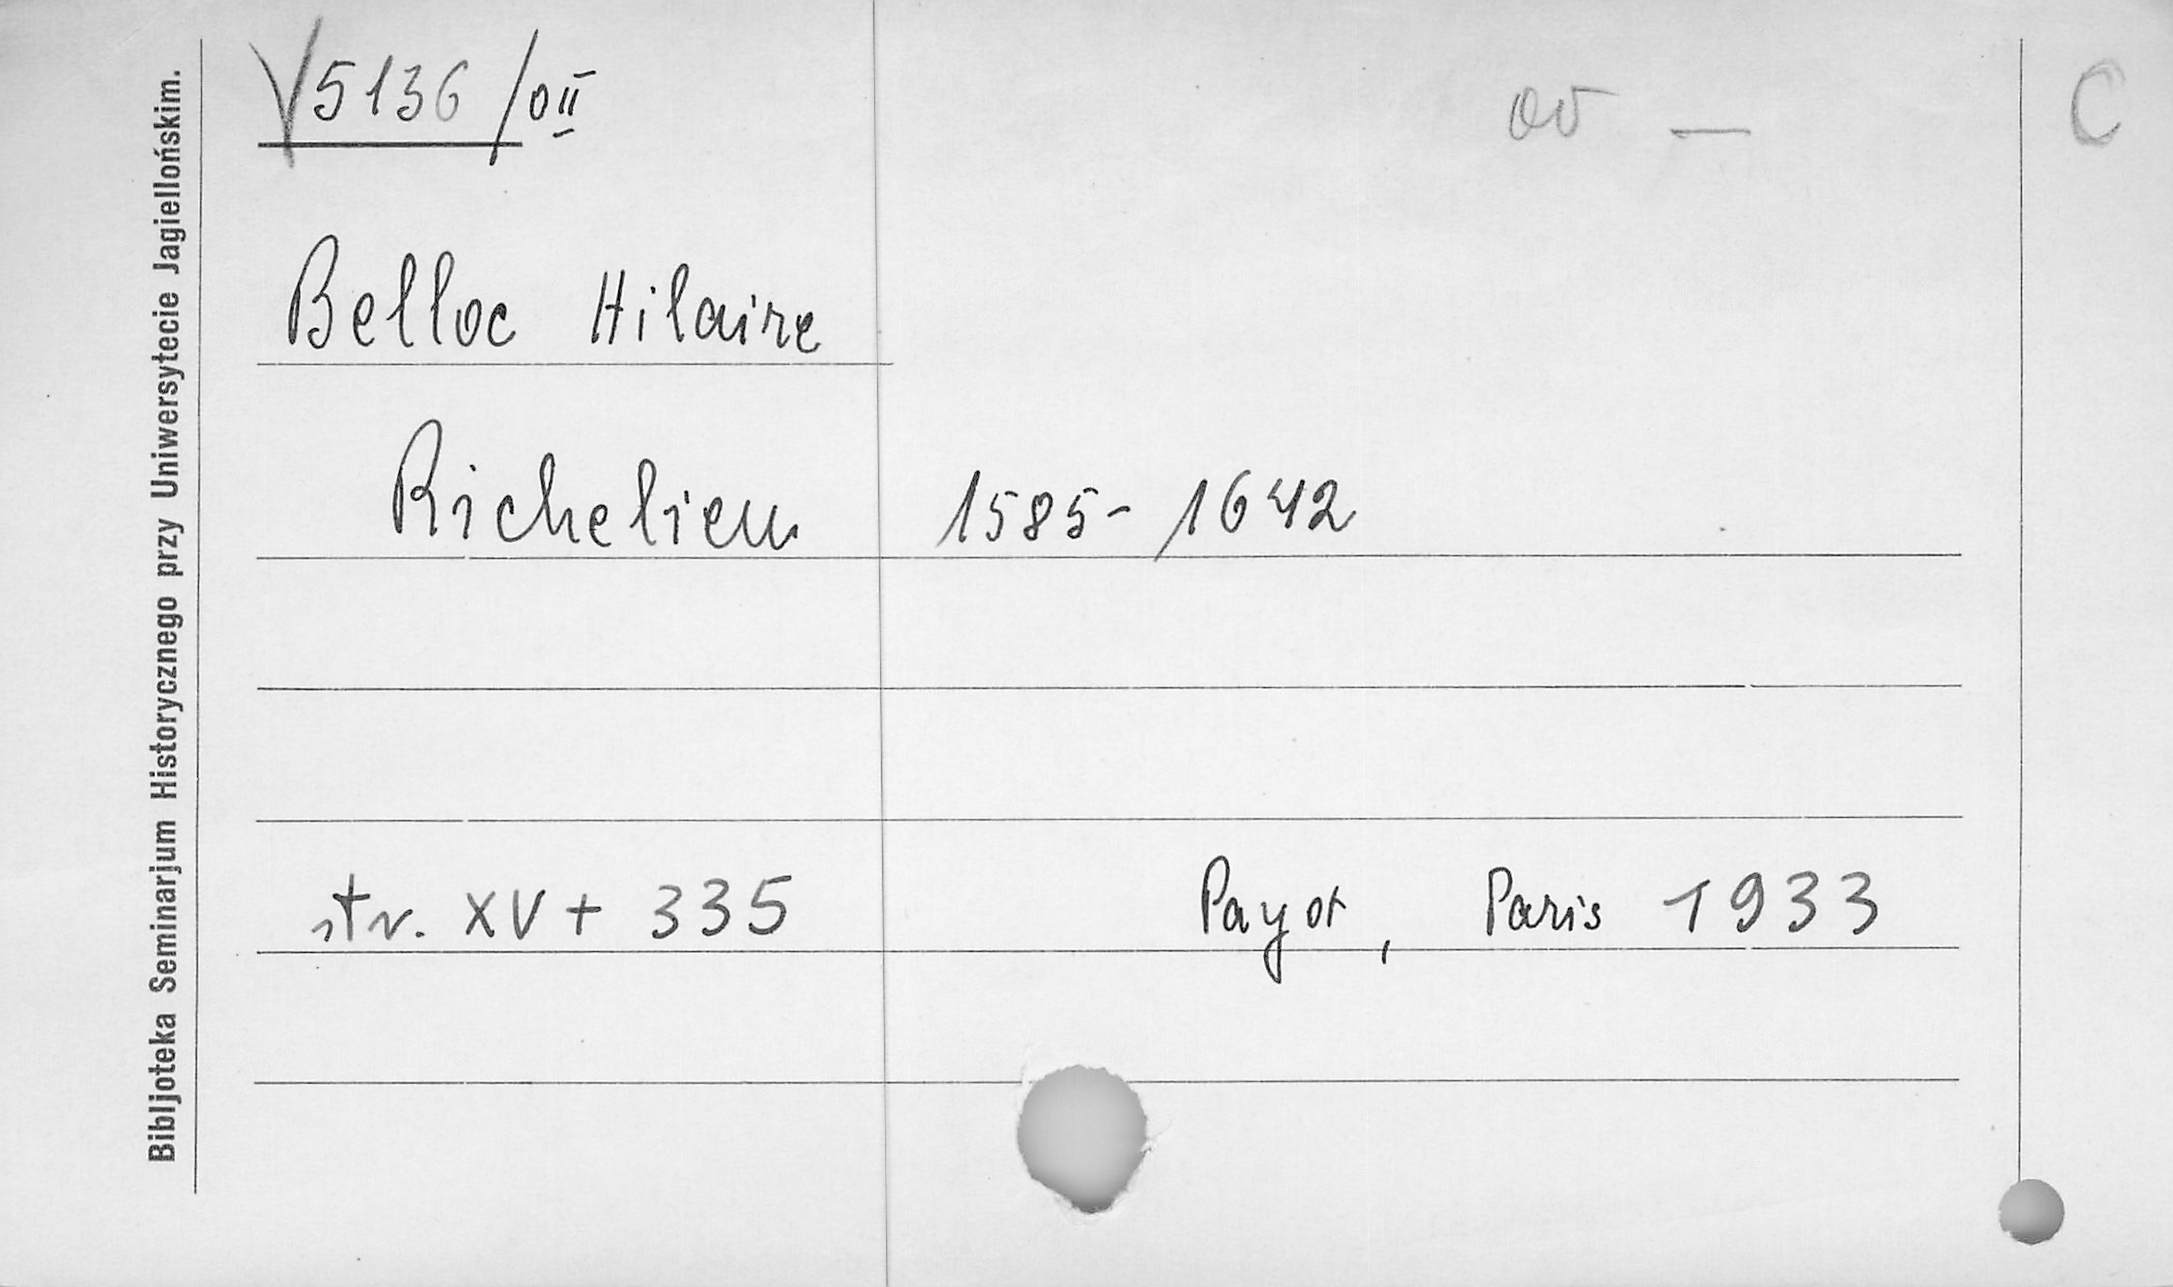 Bibljoteka Seminarjum Historycznego przy Uniwersytecie Jagiellońskim.
5136/0II
C
Belloc Hilaire
Richelieu 1585-1642
str. XV + 335 Payot, Paris 1933